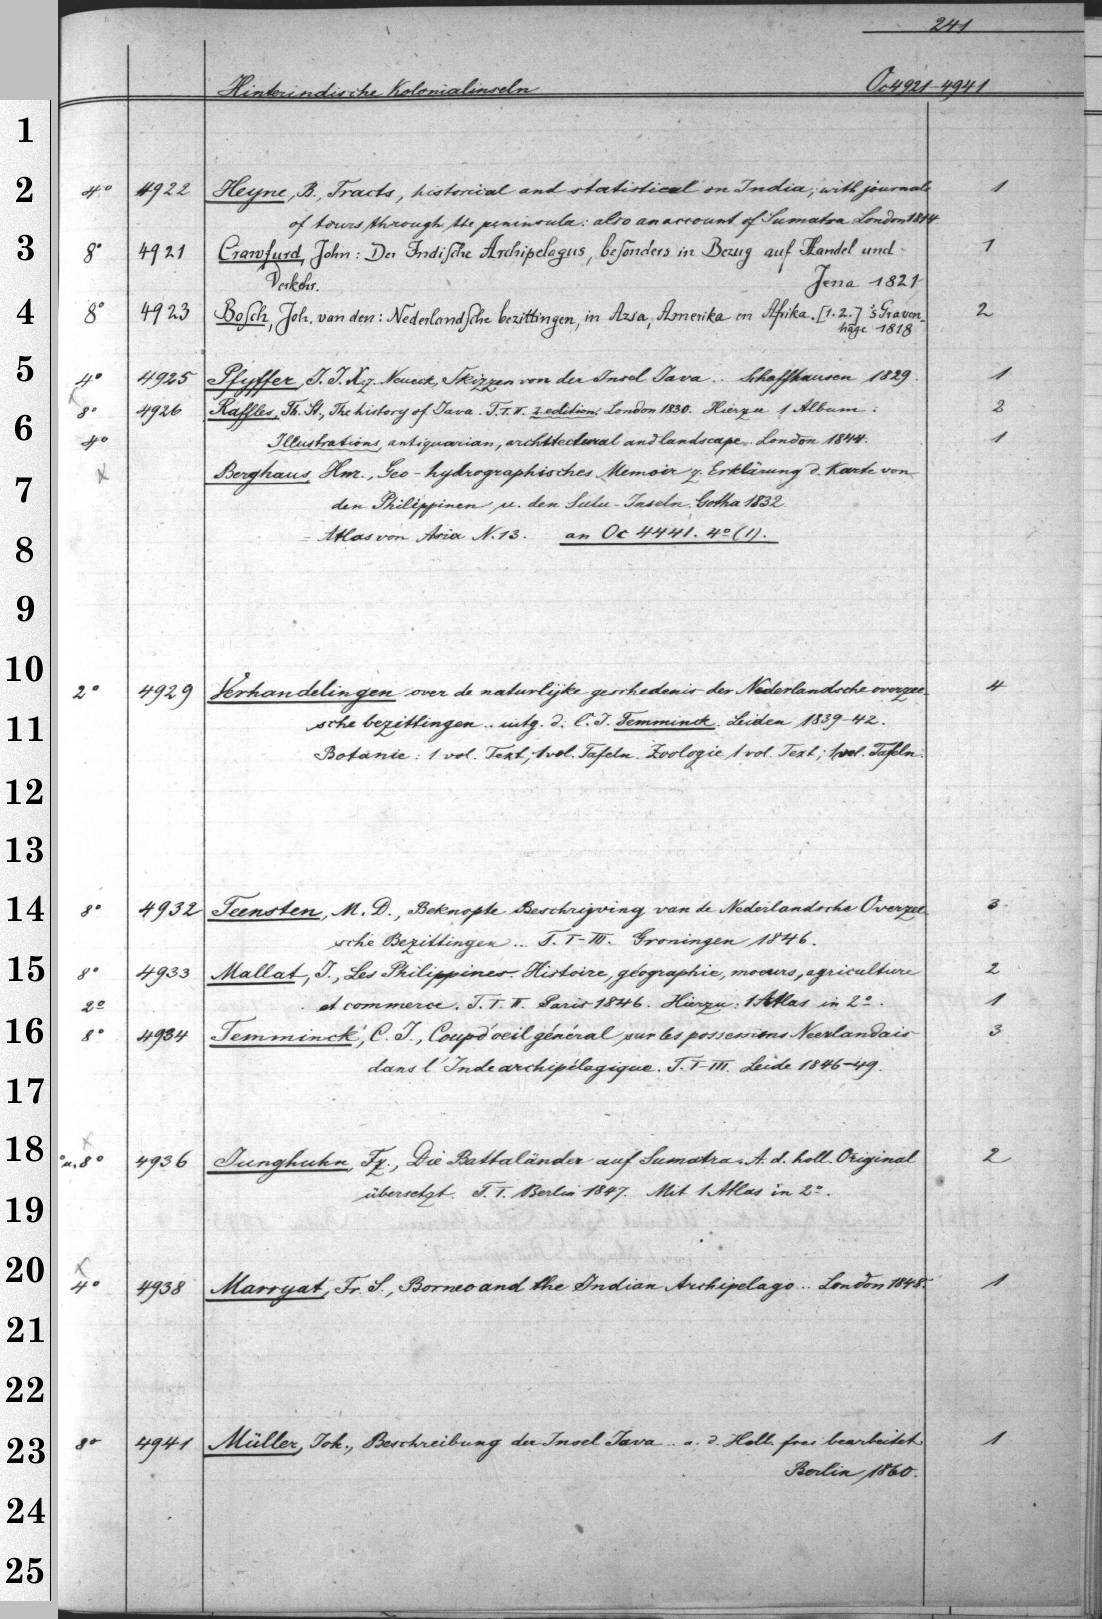 241
Hinterindische Kolonialinseln Oc 4921-4941
1
2 4° 4922 Heyne, B., Tracts, historical and statistical on India; with journals 1
of tours through the peninsula: also an account of Sumatra London 1814
3 8° 4921 Crawfurd, John: Der Indische Archipelagus, besonders in Bezug auf Handel und 1
Verkehr. Jena 1821
4 8° 4923 Bosch, Joh. van den: Nederlandsche bezittingen, in Azia, Amerika en Afrika. [1.2.] 's Graven- 2
hage 1818
5 4° 4925 Pfyffer, J. J. X. z. Neueck, Skizzen von der Insel Java .. Schaffhausen 1829. 1
8° 4926 Raffles, Th. St., The history of Java. T. I. II. 2 edition. London 1830. Hierzu 1 Album: 2
6 4° Illustrations, antiquarian, architectural and landscape. London 1844. 1
7 Berghaus, Hnr., Geo-hydrographisches Memoir z. Erklärung d. Karte von
den Philippinen u. den Sulu-Inseln. Gotha 1832
8 - Atlas von Asia N. 13. an Oc 4441. 4° (1).
9
10 2° 4929 Verhandelingen over de naturlijke geschedenis der Nederlandsche overzee- 4
11 sche bezittingen .. uitg. d. C. J. Temminck. Leiden 1839-42.
Botanie: 1 vol. Text; 1 vol. Tafeln. Zoologie 1 vol. Text; 1 vol. Tafeln.
12
13
14 8° 4932 Teensten, M. D., Beknopte Beschrijving van de Nederlandsche Overzee- 3
sche Bezittingen ... T. I-III. Groningen 1846.
15 8° 4933 Mallat, J., Les Philippines. Histoire, géographie, moeurs, agriculture 2
2° et commerce. T. I. II. Paris 1846. Hierzu: 1 Atlas in 2°. 1
16 8° 4934 Temminck, C. J., Coup d'oeil général sur les possessions Neerlandais 3
dans l'Inde archipélagique. T. I-III. Leide 1846-49.
17
18 ° u. 8° 4936 Junghuhn, Fz., Die Battaländer auf Sumatra. A. d. holl. Original 2
übersetzt. T. I. Berlin 1847. Mit 1 Atlas in 2°.
19
20 4° 4938 Marryat, Fr. S., Borneo and the Indian Archipelago .. London 1848. 1
21
22
23 8° 4941 Müller, Joh., Beschreibung der Insel Java .. a. d. Holl. frei bearbeitet. 1
Berlin 1860.
24
25